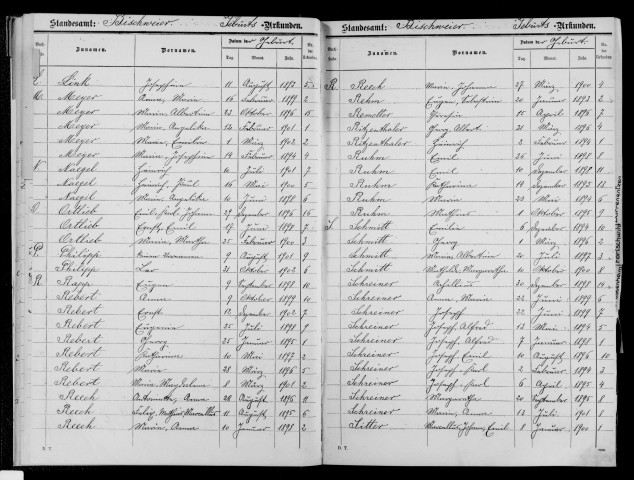 Standesamt: Bischweier. Geburts-Urkunden.
Zunamen. Vornamen. Datum der Geburt. Tag. Monat. Jahr. Nr. der Urkunden.
L. Link Josephine 11 August 1897 5
M. Meyer Anna, Maria 16 Februar 1899 2
Meyer Maria Albertine 23 Oktober 1896 15
Meyer Maria, Angelika 12 Februar 1901 1
Meyer Maria, Emilie 1 März 1902 2
Meyer Maria, Josephine 14 Februar 1894 4
N. Nagel Heinrich 10 Juli 1901 7
Nagel Heinrich, Paul 16 Mai 1900 5
Nagel Maria, Angelika 10 Juni 1898 6
O. Ortlieb Emil, Karl, Johann 27 Dezember 1896 16
Ortlieb Ernst, Emil 17 Juni 1898 7
Ortlieb Maria, Martha 25 Februar 1900 3
P. Philipp Hermann 9 August 1901 9
Philipp Leo 31 Oktober 1902 6
R. Rapp Eugen 9 September 1898 10
Rebert Anna 9 Oktober 1899 10
Rebert Ernst 12 Dezember 1902 7
Rebert Eugenie 25 Juli 1891 9
Rebert Georg 25 Januar 1895 1
Rebert Katharina 10 Mai 1897 2
Rebert Maria 28 März 1896 5
Rebert Maria Magdalena 8 März 1901 2
Reech Antoinette, Anna 28 August 1896 11
Reech 11 August 1895 6
Reech Maria, Anna 10 Januar 1898 2
D. 7.
Standesamt: Bischweier. Geburts-Urkunden.
Zunamen. Vornamen. Datum der Geburt. Tag. Monat. Jahr. Nr. der Urkunden.
R. Reech Maria Johanna 27 März 1900 4
Rehm Eugen, Sebastian 20 Januar 1893 2
Remetter Josephin 15 April 1896 7
Ritzenthaler Georg Albert 21 März 1896 4
Ritzenthaler Heinrich 2 Februar 1894 1
Ruhm Emil 25 Juni 1898 8
Ruhm Emil 10 Dezember 1891 11
Ruhm Katharina 14 Dezember 1895 12
Ruhm Maria 23 Mai 1894 6
Ruhm Mathias 1 Oktober 1895 9
S. Schmitt Emilie 6 Dezember 1894 10
Schmitt Georg 1 März 1896 2
Schmitt Maria, Albertine 20 Juli 1897 3
Schmitt Mathilde, Margaretha 10 Oktober 1900 8
Schreiner Achilles 20 Dezember 1898 11
Schreiner Anna, Maria 22 Juni 1899 6
Schreiner Joseph 22 Juni 1899 7
Schreiner Joseph, Alfred 12 Mai 1896 5
Schreiner Joseph, Alfred 7 Januar 1898 1
Schreiner Joseph, Emil 10 August 1896 10
Schreiner Joseph, Karl 2 Februar 1894 3
Schreiner Joseph, Karl 6 April 1895 4
Schreiner Margaretha 20 September 1895 8
Schreiner Maria, Anna 13 Juli 1901 8
Sitter Marcellus, Johann, Emil 8 Januar 1900 1
D. 7.